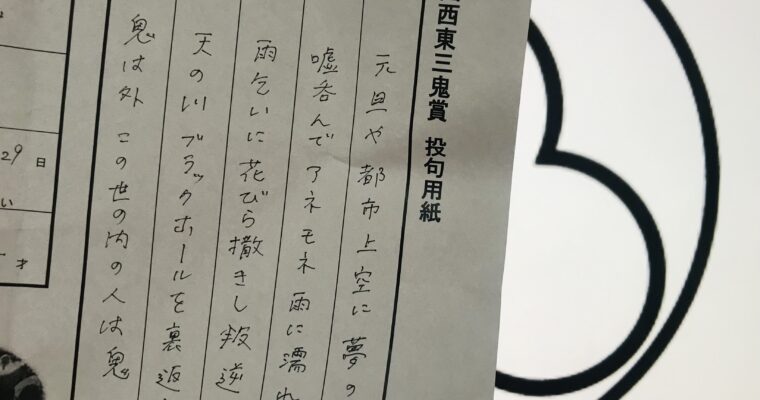 西東三鬼賞 投句用紙
元旦や都市上空に夢の
嘘呑んでアネモネ雨に濡れ
雨乞いに花びら撒きし叛逆
天の川ブラックホールを裏返
鬼は外この世の内の人は鬼
29日
い
才